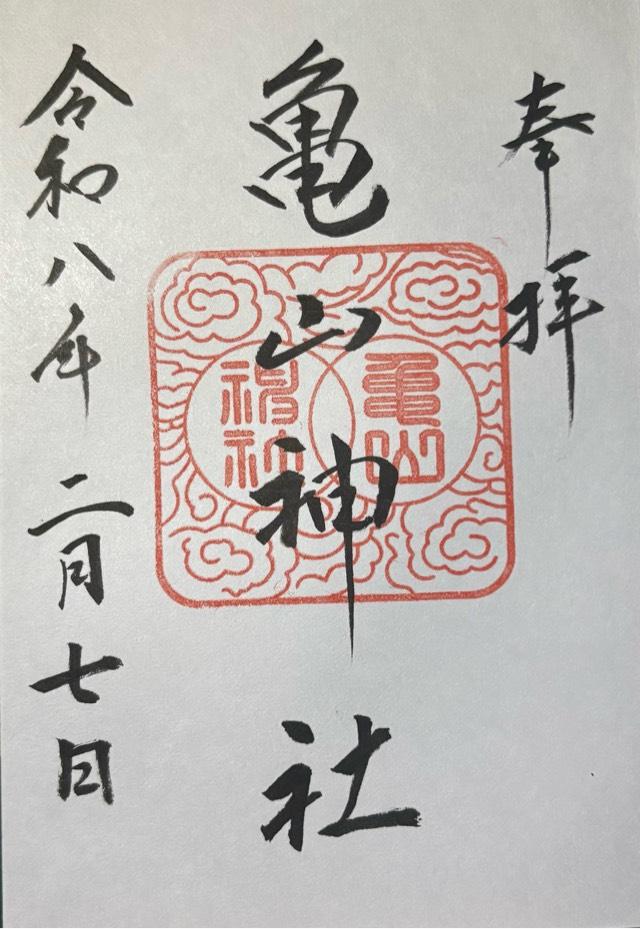 奉拝
亀山神社
亀山
神社
令和八年二月七日